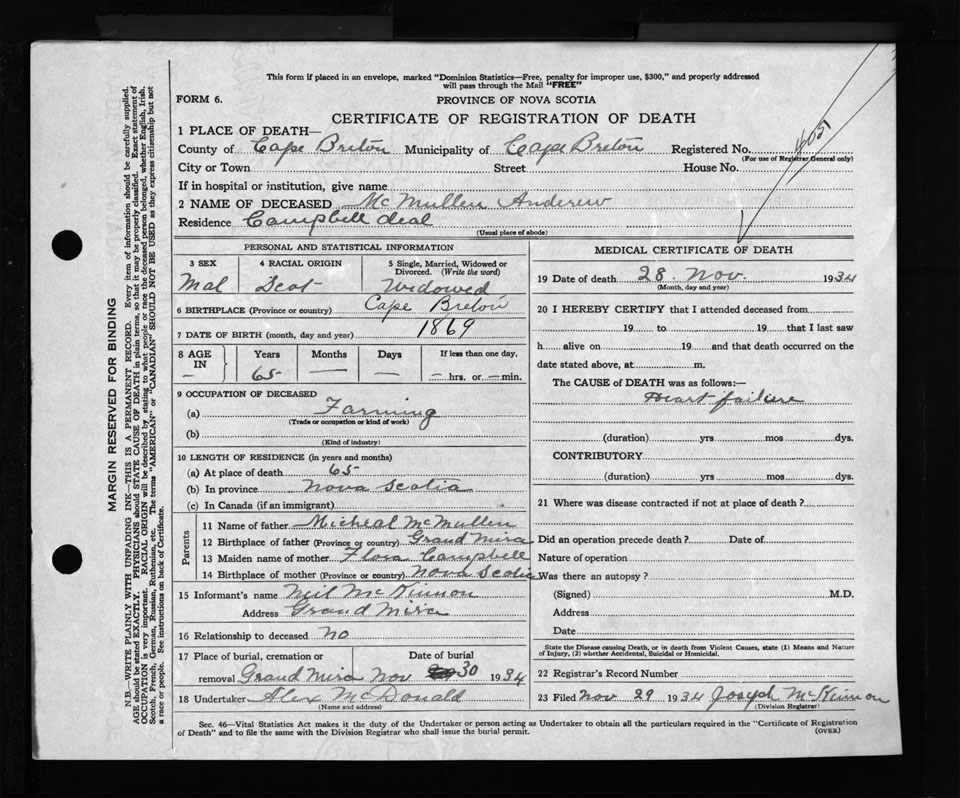 This form if placed in an envelope, marked "Dominion Statistics—Free, penalty for improper use, $300," and properly addressed
will pass through the Mail "FREE"
FORM 6.
PROVINCE OF NOVA SCOTIA
CERTIFICATE OF REGISTRATION OF DEATH
1 PLACE OF DEATH—
County of Cape Breton Municipality of Cape Breton Registered No.
(For use of Registrar General only)
City or Town Street House No.
If in hospital or institution, give name
2 NAME OF DECEASED McMullen Anderew
Residence Campbell deal
(Usual place of abode)
PERSONAL AND STATISTICAL INFORMATION
3 SEX 4 RACIAL ORIGIN 5 Single, Married, Widowed or
Divorced. (Write the word)
Mal Scot Widowed
6 BIRTHPLACE (Province or country) Cape Breton
7 DATE OF BIRTH (month, day and year) 1869
8 AGE Years Months Days If less than one day,
IN
— 65 — — — hrs. or — min.
9 OCCUPATION OF DECEASED
(a) Farming
(Trade or occupation or kind of work)
(b)
(Kind of industry)
10 LENGTH OF RESIDENCE (in years and months)
(a) At place of death 65
(b) In province Nova Scotia
(c) In Canada (if an immigrant)
Parents
11 Name of father Micheal McMullen
12 Birthplace of father (Province or country) Grand Mira
13 Maiden name of mother Flora Campbell
14 Birthplace of mother (Province or country) Nova Scotia
15 Informant's name Neil McKinnon
Address Grand Mira
16 Relationship to deceased no
17 Place of burial, cremation or Date of burial
removal Grand Mira Nov 30 1934
18 Undertaker Alex McDonald
(Name and address)
MEDICAL CERTIFICATE OF DEATH
19 Date of death 28 Nov. 1934
(Month, day and year)
20 I HEREBY CERTIFY that I attended deceased from
19 to 19 that I last saw
h alive on 19 and that death occurred on the
date stated above, at m.
The CAUSE of DEATH was as follows:—
Heart failiere
(duration) yrs mos dys.
CONTRIBUTORY
(duration) yrs mos dys.
21 Where was disease contracted if not at place of death?
Did an operation precede death? Date of
Nature of operation
Was there an autopsy?
(Signed) M.D.
Address
Date
State the Disease causing Death, or in death from Violent Causes, state (1) Means and Nature
of Injury, (2) whether Accidental, Suicidal or Homicidal.
22 Registrar's Record Number
23 Filed Nov 29 1934 Joseph McKinnon
(Division Registrar)
Sec. 46—Vital Statistics Act makes it the duty of the Undertaker or person acting as Undertaker to obtain all the particulars required in the "Certificate of Registration
of Death" and to file the same with the Division Registrar who shall issue the burial permit. (OVER)
MARGIN RESERVED FOR BINDING
N.B.—WRITE PLAINLY WITH UNFADING INK—THIS IS A PERMANENT RECORD. Every item of information should be carefully supplied.
AGE should be stated EXACTLY. PHYSICIANS should STATE CAUSE OF DEATH in plain terms, so that it may be properly classified. Exact statement of
OCCUPATION is very important. RACIAL ORIGIN will be described by stating to what people or race the deceased person belonged, whether English, Irish,
Scotch, French, German, Russian, Ruthenian, etc. The terms "AMERICAN" or "CANADIAN" SHOULD NOT BE USED as they express citizenship but not
a race or people. See instructions on back of Certificate.